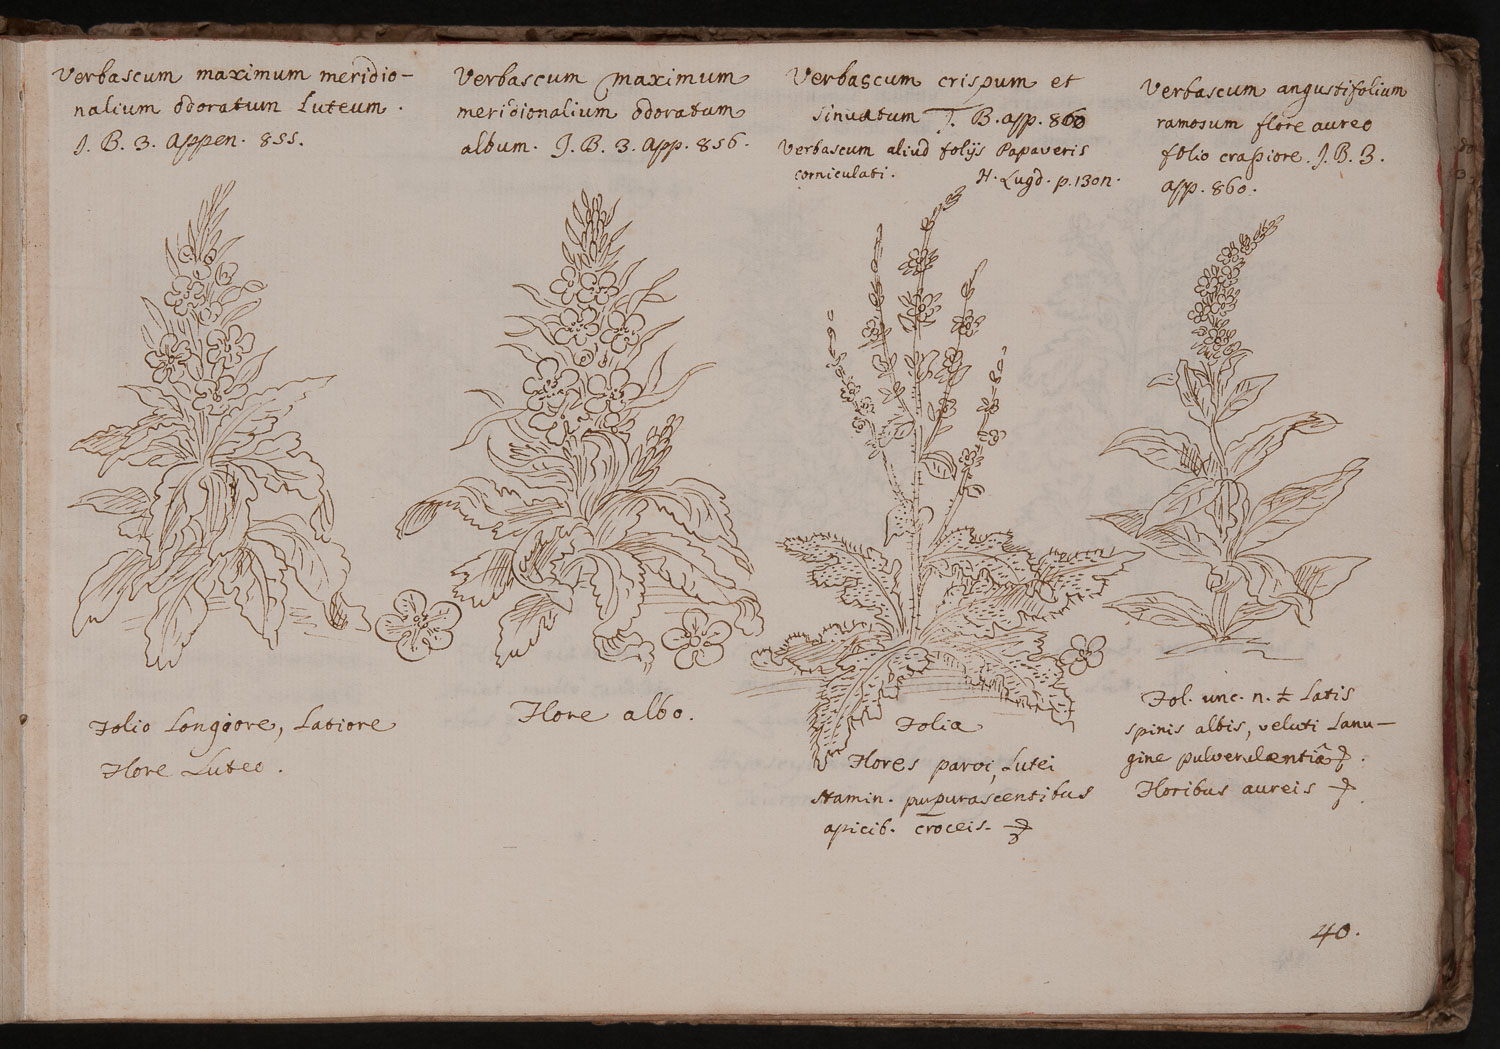 Verbascum maximum meridio-
nalium odoratum Luteum.
J. B. 3. Appen. 855.
Verbascum maximum
meridionalium odoratum
album. J. B. 3. App. 856.
Verbascum crispum et
sinuatum J. B. app. 860
Verbascum aliud folijs Papaveris
corniculati. H. Lugd. p. 1301.
Verbascum angustifolium
ramosum flore aureo
folio craſsiore. J. B. 3.
app. 860.
Folio Longiore, Latiore
Flore Luteo.
Flore albo.
Folia
Flores parvi, Lutei
stamin. pupurascentibus
apicib. croceis.
Fol. unc. n. ± Latis
spinis albis, veluti Lanu-
gine pulverulentiâ
Floribus aureis
40.